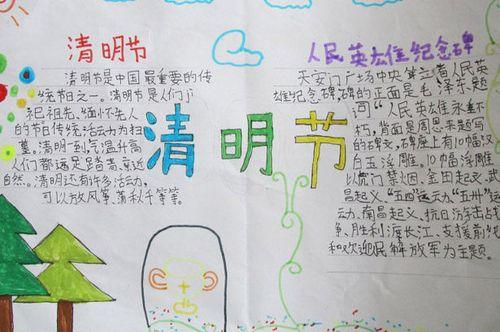 清明节
清明节是中国最重要的传
统节日之一。清明节是人们
祀祖先、缅怀先人
的节日传统活动为扫
墓。清明一到气温升高
人们都远足踏青、亲近
自然。清明还有许多活动,
可以放风筝、荡秋千等等。
清明节
人民英雄纪念碑
天安门广场中央耸立着人民英
雄纪念碑,碑的正面是毛泽东题
词“人民英雄永垂不
朽,背面是周恩来题写
的碑文,碑座上有10幅汉
白玉浮雕。10幅浮雕
以虎门禁烟、金田起义、武
昌起义、“五四”运动、“五卅”运
动、南昌起义、抗日游击战
争、胜利渡长江、支援前线
和欢迎民解放军为主题。